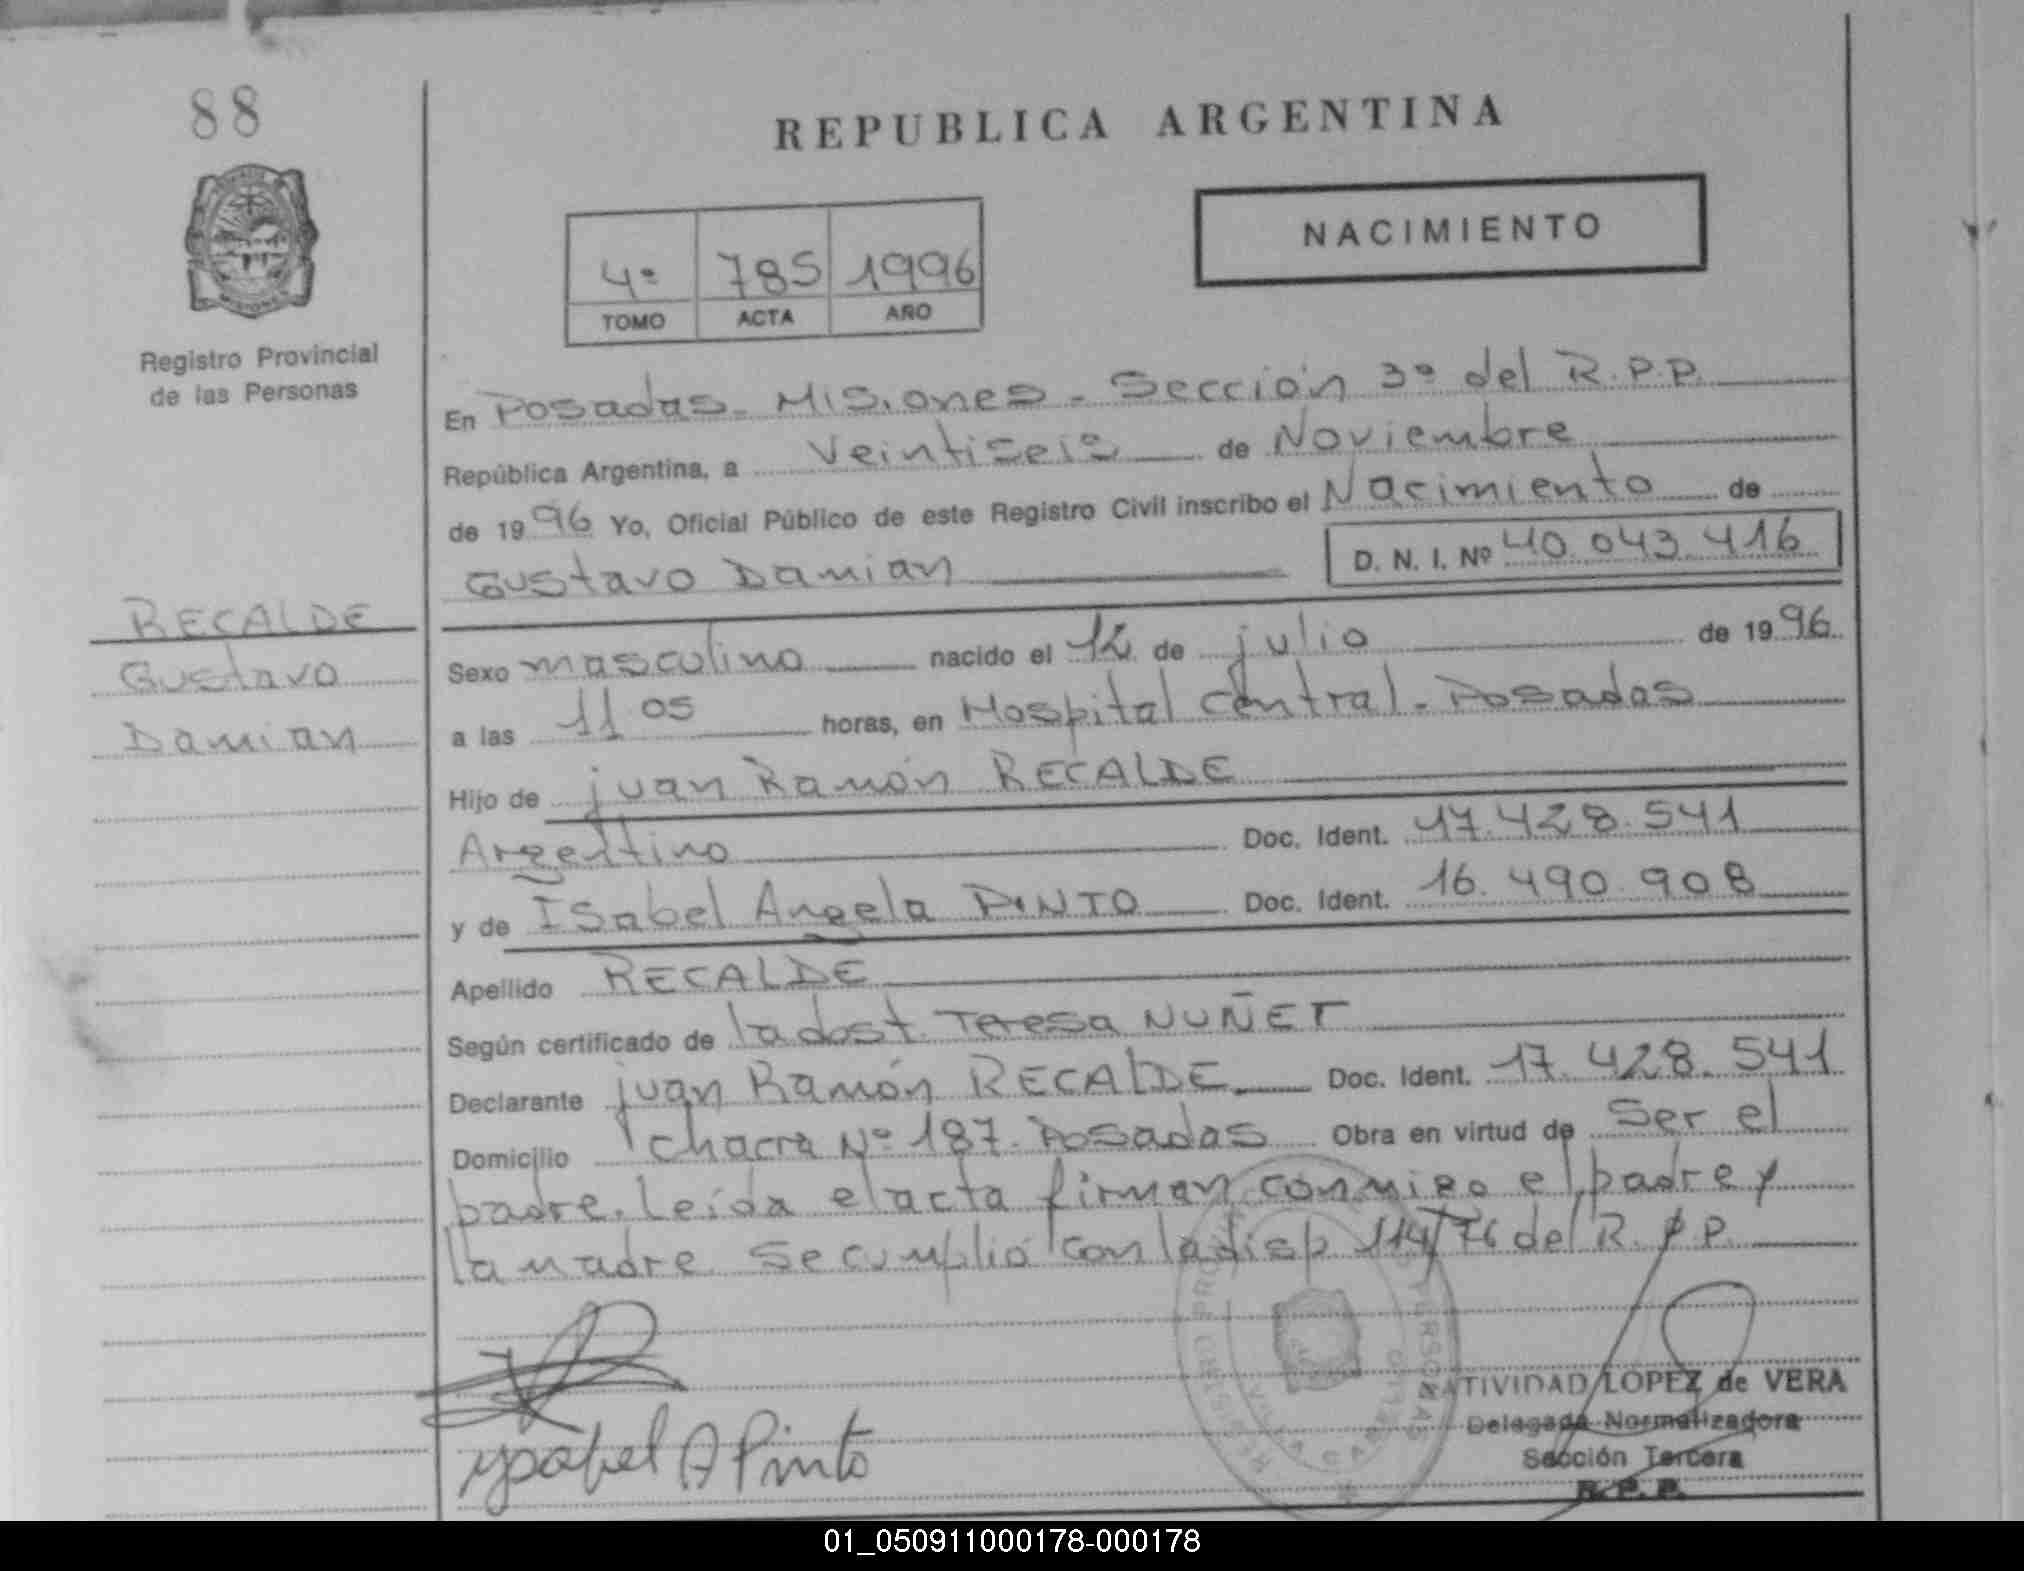 88
REPUBLICA ARGENTINA
NACIMIENTO
4º 785 1996
TOMO ACTA AÑO
Registro Provincial
de las Personas
En Posadas - Misiones - Sección 3º del R.P.P.
República Argentina, a Veintiseis de Noviembre
de 1996 Yo, Oficial Público de este Registro Civil inscribo el Nacimiento de
Gustavo Damian D. N. I. Nº 40.043.416
RECALDE
Gustavo
Damian
Sexo masculino nacido el 12 de julio de 1996
a las 11 05 horas, en Hospital Central - Posadas
Hijo de juan Ramón RECALDE
Argentino Doc. Ident. 17.428.541
y de ISabel Angela PINTO Doc. Ident. 16.490.908
Apellido RECALDE
Según certificado de la dost. Teresa NUÑET
Declarante juan Ramón RECALDE Doc. Ident. 17.428.541
Domicilio chacra Nº 187. Posadas Obra en virtud de ser el
padre. Leída el acta firman conmigo el padre y
la madre. Se cumplió con la disp 114/76 del R.P.P.
Ysabel A Pinto
NATIVIDAD LOPEZ de VERA
Delegada Normalizadora
Sección Tercera
R. P. P.
01_050911000178-000178